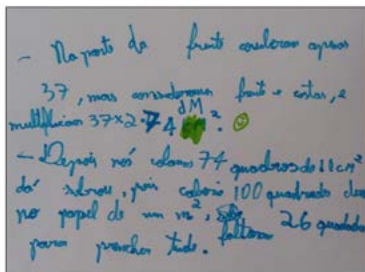 - Na parte da frente couberam apenas
37, mas consideramos frente e costas, e
multiplicamos 37x2 74 dM².
- Depois nós colamos 74 quadros de 11cm²
dá sobrou, pois caberia 100 quadrado desse
no papel de um m², faltaram 26 quadrados
para preencher tudo.